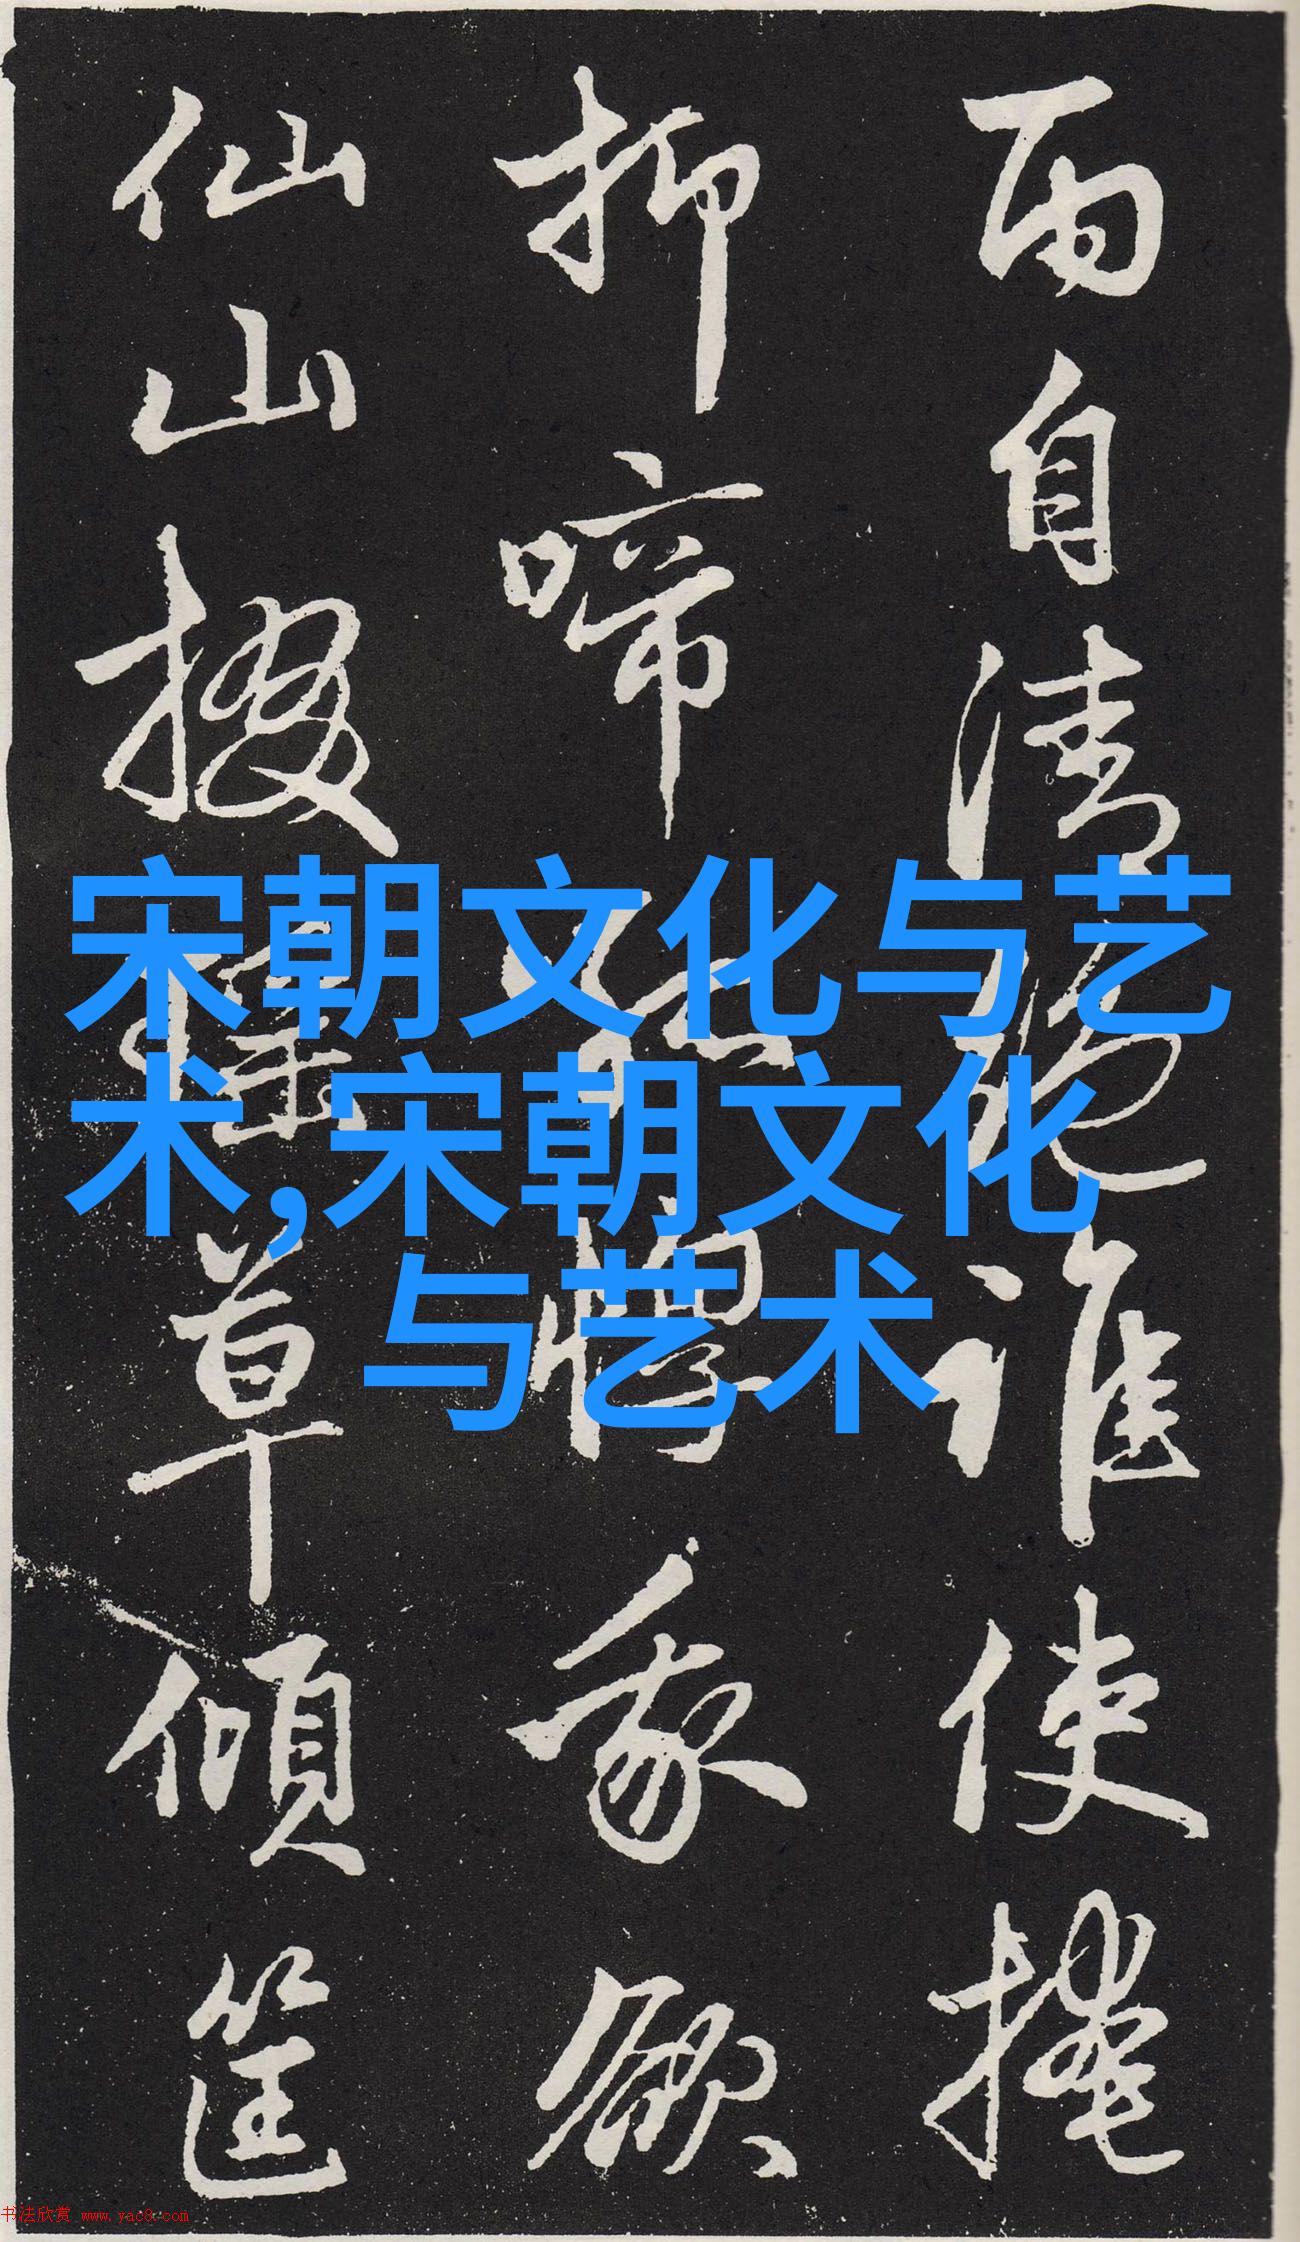 自清谁使掩
抑啼我欲
仙山掇瑶草倾筐
宋朝文化与艺
术,宋朝文化
与艺术
书法欣赏 www.yac8.com